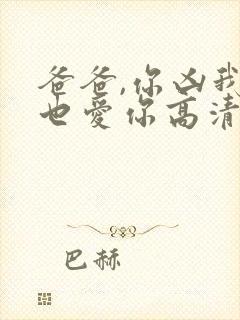 爸爸,你凶我
也爱你高清
巴赫